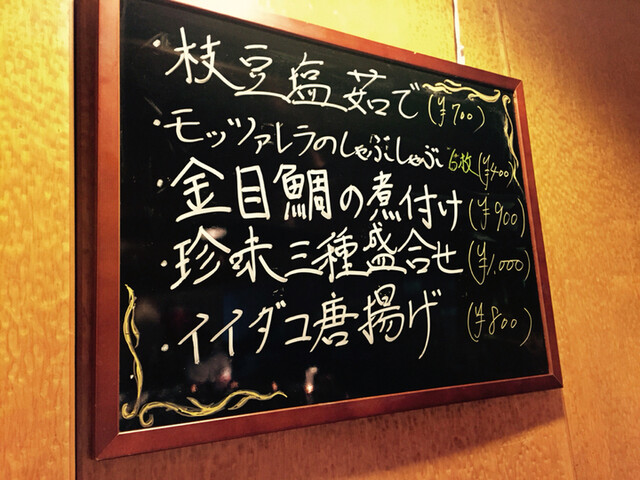 ・枝豆塩茹で (¥700)
・モッツァレラのしゃぶしゃぶ 5枚 (¥400)
・金目鯛の煮付け (¥900)
・珍味三種盛合せ (¥1,000)
・イイダコ唐揚げ (¥800)